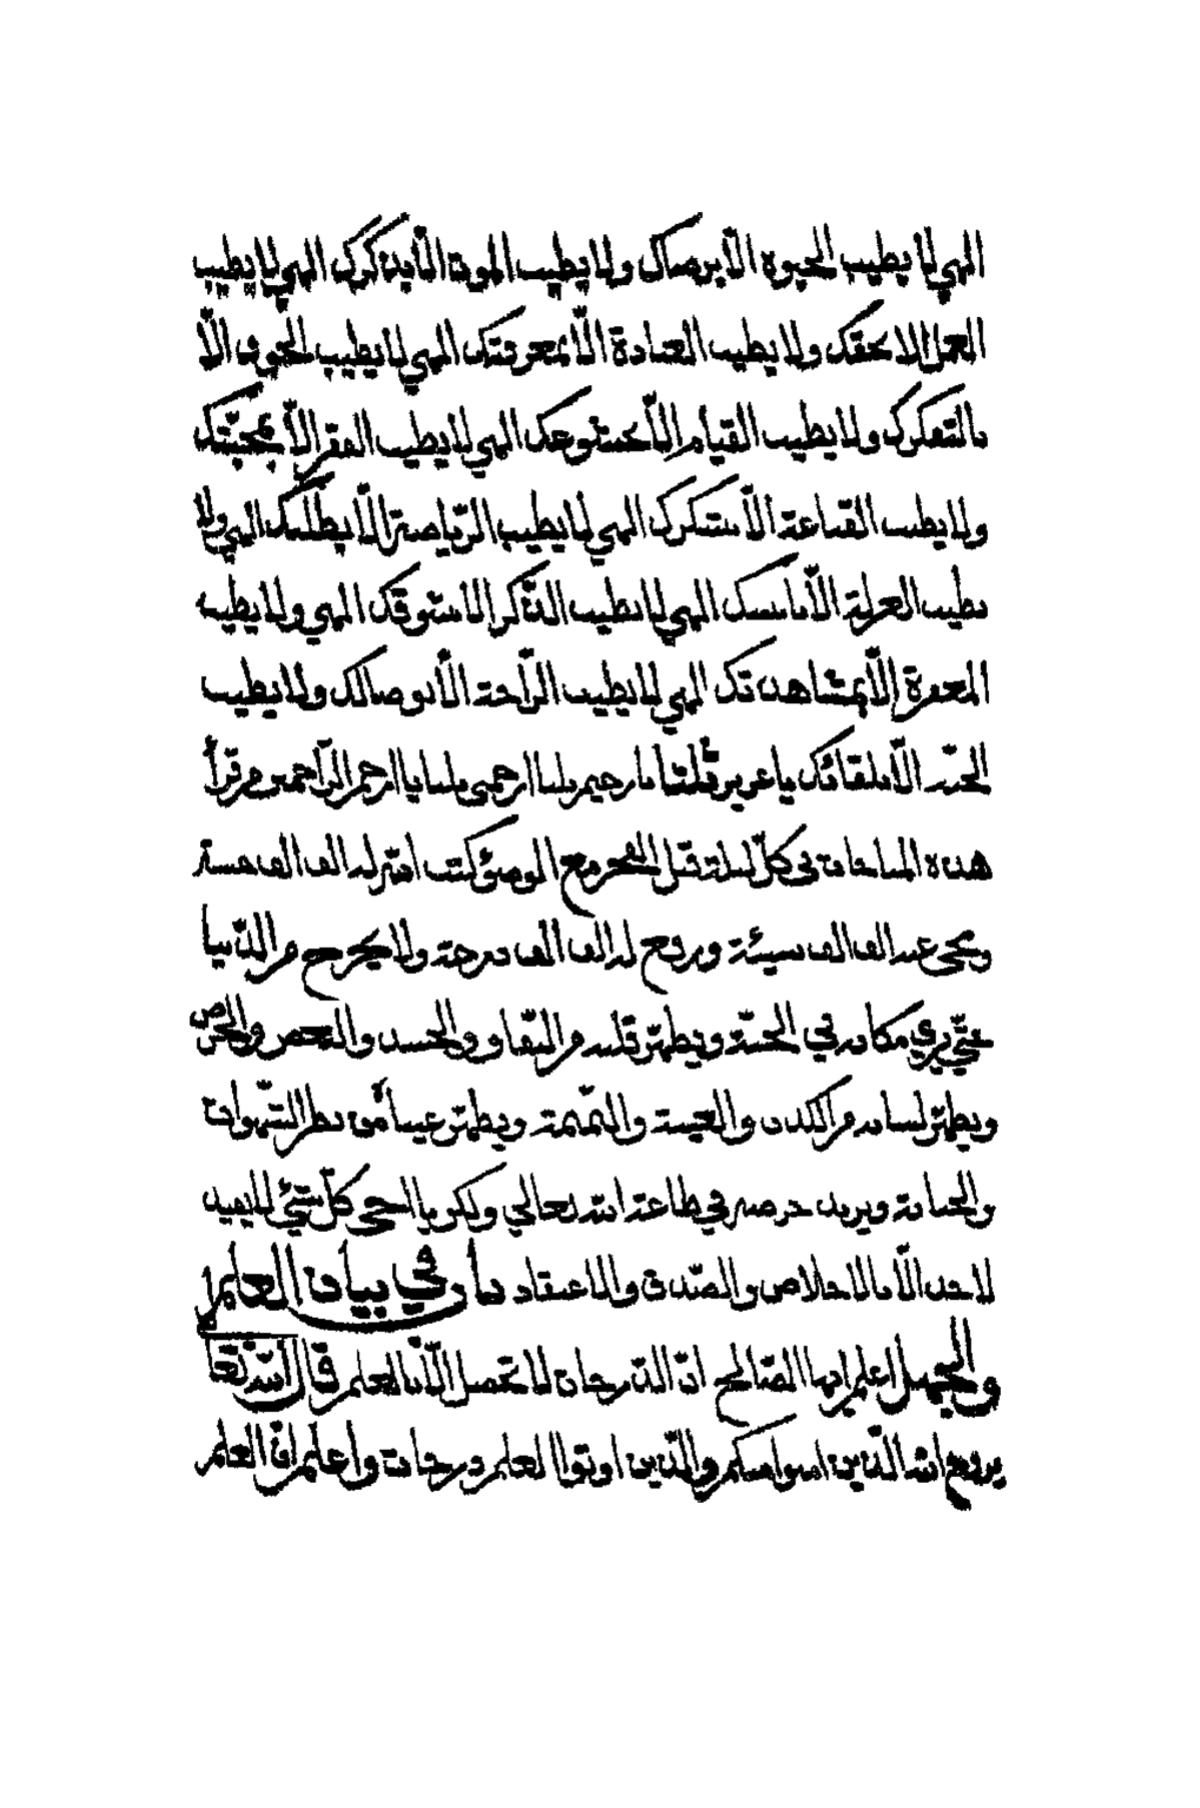 الهي لا يطيب الحيوة الا برضاك ولا يطيب الموت الا بذكرك الهي لا يطيب
العمل الا بحقك ولا يطيب العبادة الّا بمعرفتك الهي لا يطيب الخوف الّا
بالتفكرك ولا يطيب القيام الّا بخشوعك الهي لا يطيب الفقر الّا بمحبّتك
ولا يطيب القناعة الّا بشكرك الهي لا يطيب الرّياضة الّا بطلبك الهي ولا
يطيب العزلة الّا بانسك الهي لا يطيب الذّكر الا بشوقك الهي ولا يطيب
المغفرة الّا بمشاهدتك الهي لا يطيب الرّاحة الّا بوصالك ولا يطيب
الّا بلقائك يا عزيز يا رحيم ارحمني يا ارحم الرّاحمين من قرأ
هذه المناجات في كلّ ليلة قبل الفجر مع الوضوء كتب الله له الف الف حسنة
ويمحى عنه الف الف سيئة ويرفع له الف الف درجة ولا يخرج من الدّنيا
حتّي يري مكانه في الجنّة ويطهّر قلبه من النّفاق والحسد والبخص والحرص
ويطهّر لسانه من الكذب والغيبة والنّميمة ويطهّر عيناه من نظر الشّهوات
والخيانة ويزيد حرصه في طاعة الله تعالي ولكن يا اخي كلّ شيئ لا يفيد
لاحد الّا بالاخلاص والصّدق والاعتقاد باب في بيان العلم
والجهل اعلم ايها الصّالح انّ الدّرجات لا تحصل الّا بالعلم قال الله تعا
يرفع الله الذّين امنوا منكم والذّين اوتوا العلم درجات واعلم انّ العلم